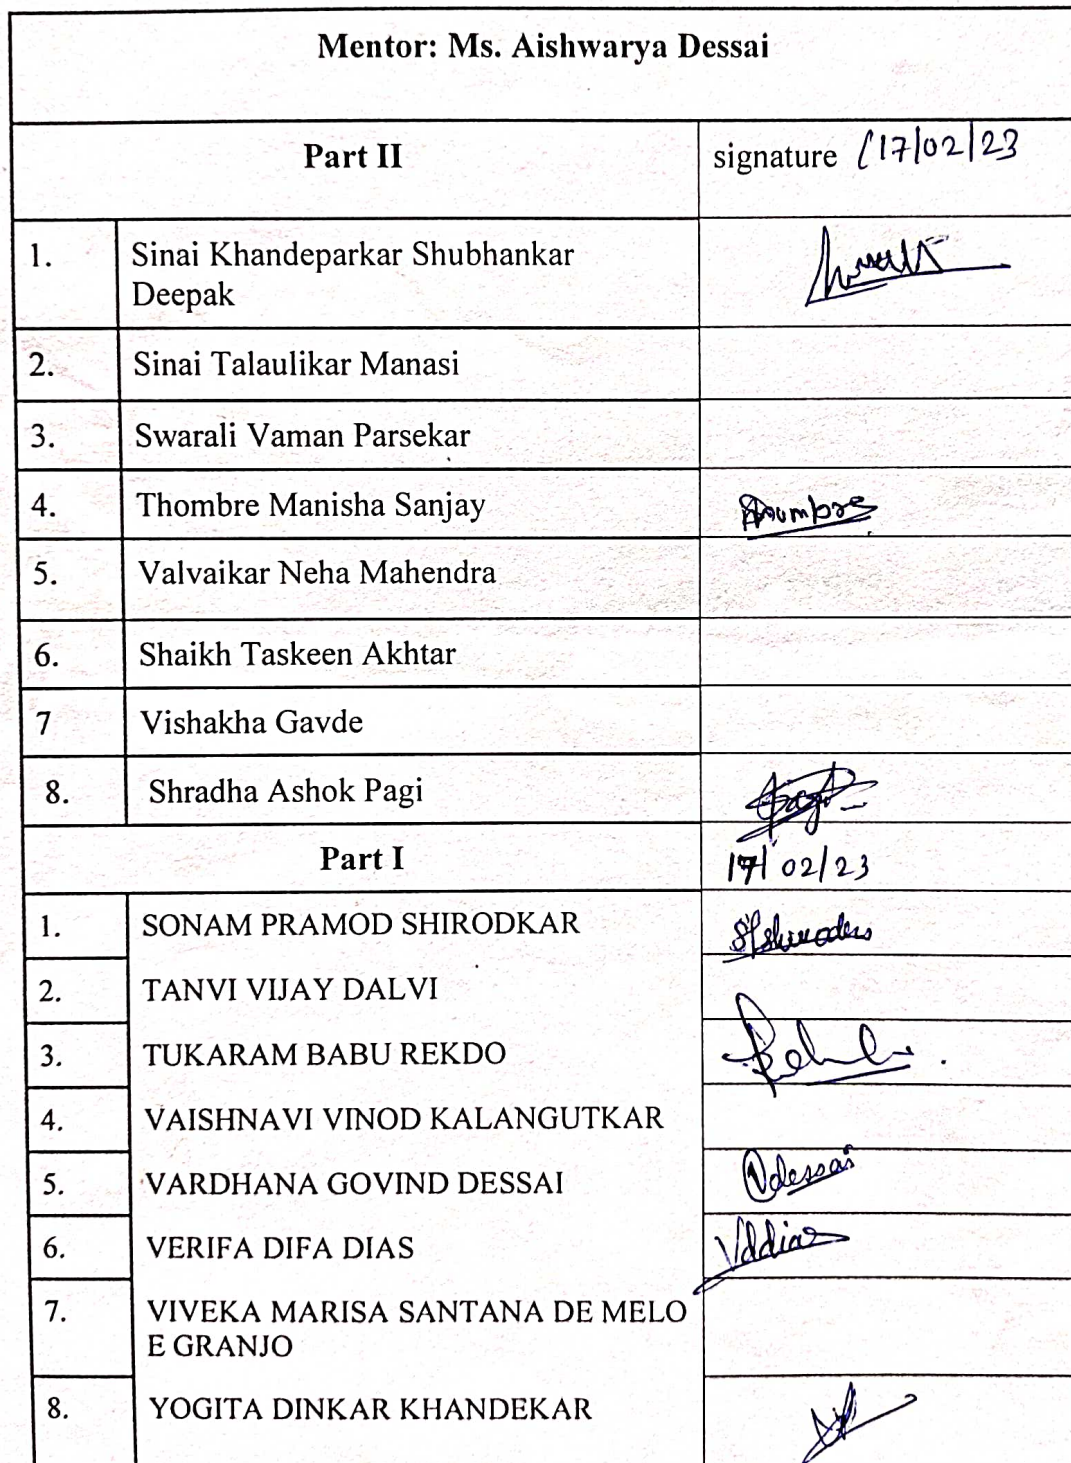 Mentor: Ms. Aishwarya Dessai
Part II signature 17/02/23
1. Sinai Khandeparkar Shubhankar
Deepak
2. Sinai Talaulikar Manasi
3. Swarali Vaman Parsekar
4. Thombre Manisha Sanjay
5. Valvaikar Neha Mahendra
6. Shaikh Taskeen Akhtar
7 Vishakha Gavde
8. Shradha Ashok Pagi
Part I 17/02/23
1. SONAM PRAMOD SHIRODKAR
2. TANVI VIJAY DALVI
3. TUKARAM BABU REKDO
4. VAISHNAVI VINOD KALANGUTKAR
5. VARDHANA GOVIND DESSAI Vdessai
6. VERIFA DIFA DIAS Vddias
7. VIVEKA MARISA SANTANA DE MELO
E GRANJO
8. YOGITA DINKAR KHANDEKAR